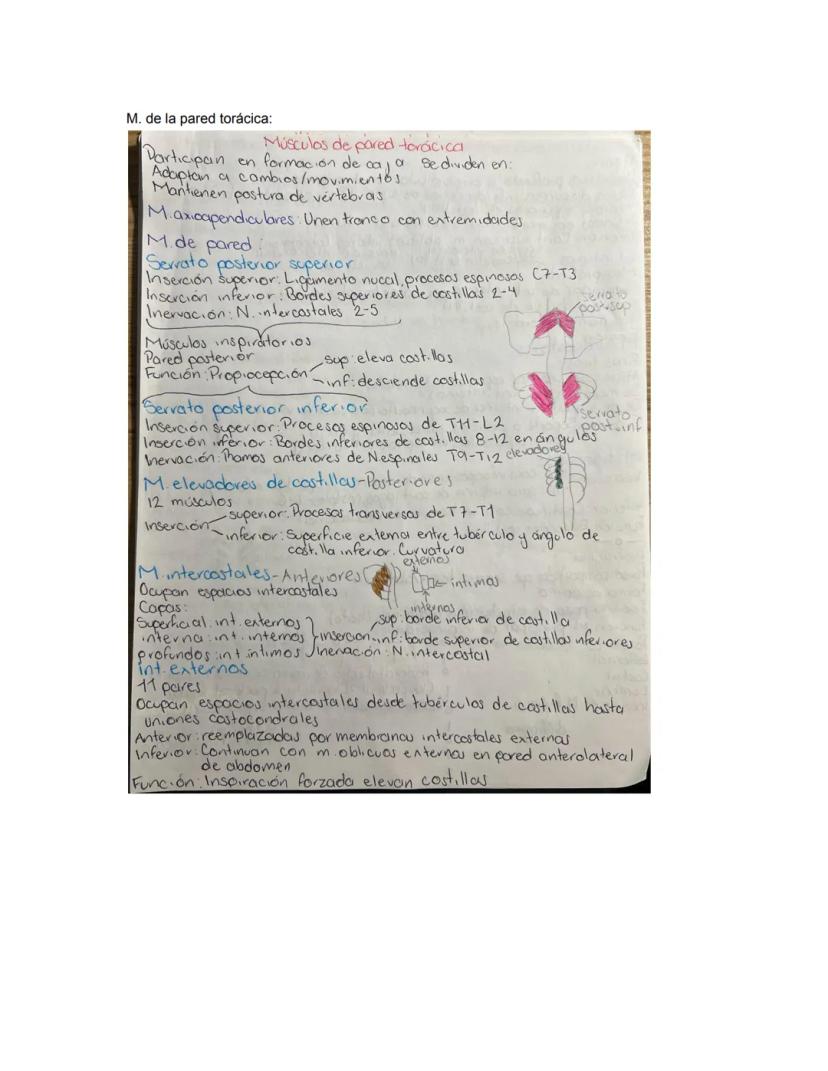 M. de la pared torácica:
Músculos de pared torácica
Participan en formación de caja se dividen en:
Adaptan a cambios/movimientos
Mantienen postura de vértebras
M. axioapendiculares: Unen tronco con extremidades
M. de pared:
Serrato posterior superior
Inserción superior: Ligamento nucal, procesos espinosos C7-T3
Inserción inferior: Bordes superiores de costillas 2-4
Inervación: N. intercostales 2-5
serrato
post. sup
Músculos inspiratorios
Pared posterior
sup: eleva costillas
Función: Propiocepción
inf: desciende costillas
Serrato posterior inferior
serrato
post. inf
Inserción superior: Procesos espinosos de T11-L2
Inserción inferior: Bordes inferiores de costillas 8-12 en ángulos
Inervación: Ramos anteriores de N. espinales T9-T12
elevadores
M. elevadores de costillas-Posteriores
12 músculos
Inserción
superior: Procesos transversos de T7-T1
inferior: Superficie externa entre tubérculo y ángulo de
costilla inferior. Curvatura
M. intercostales-Anteriores
externos
íntimos
internos
Ocupan espacios intercostales
Capas:
Superficial: int. externos
interna: int. internos
profundos: int íntimos
inserción
sup: borde inferior de costilla
inf: borde superior de costillas inferiores
Inervación: N. intercostal
Int. externos
11 pares
Ocupan espacios intercostales desde tubérculos de costillas hasta
uniones costocondrales
Anterior: reemplazadas por membranas intercostales externas
Inferior: Continuan con m. oblicuos externos en pared anterolateral
de abdomen
Función: Inspiración forzada elevan costillas